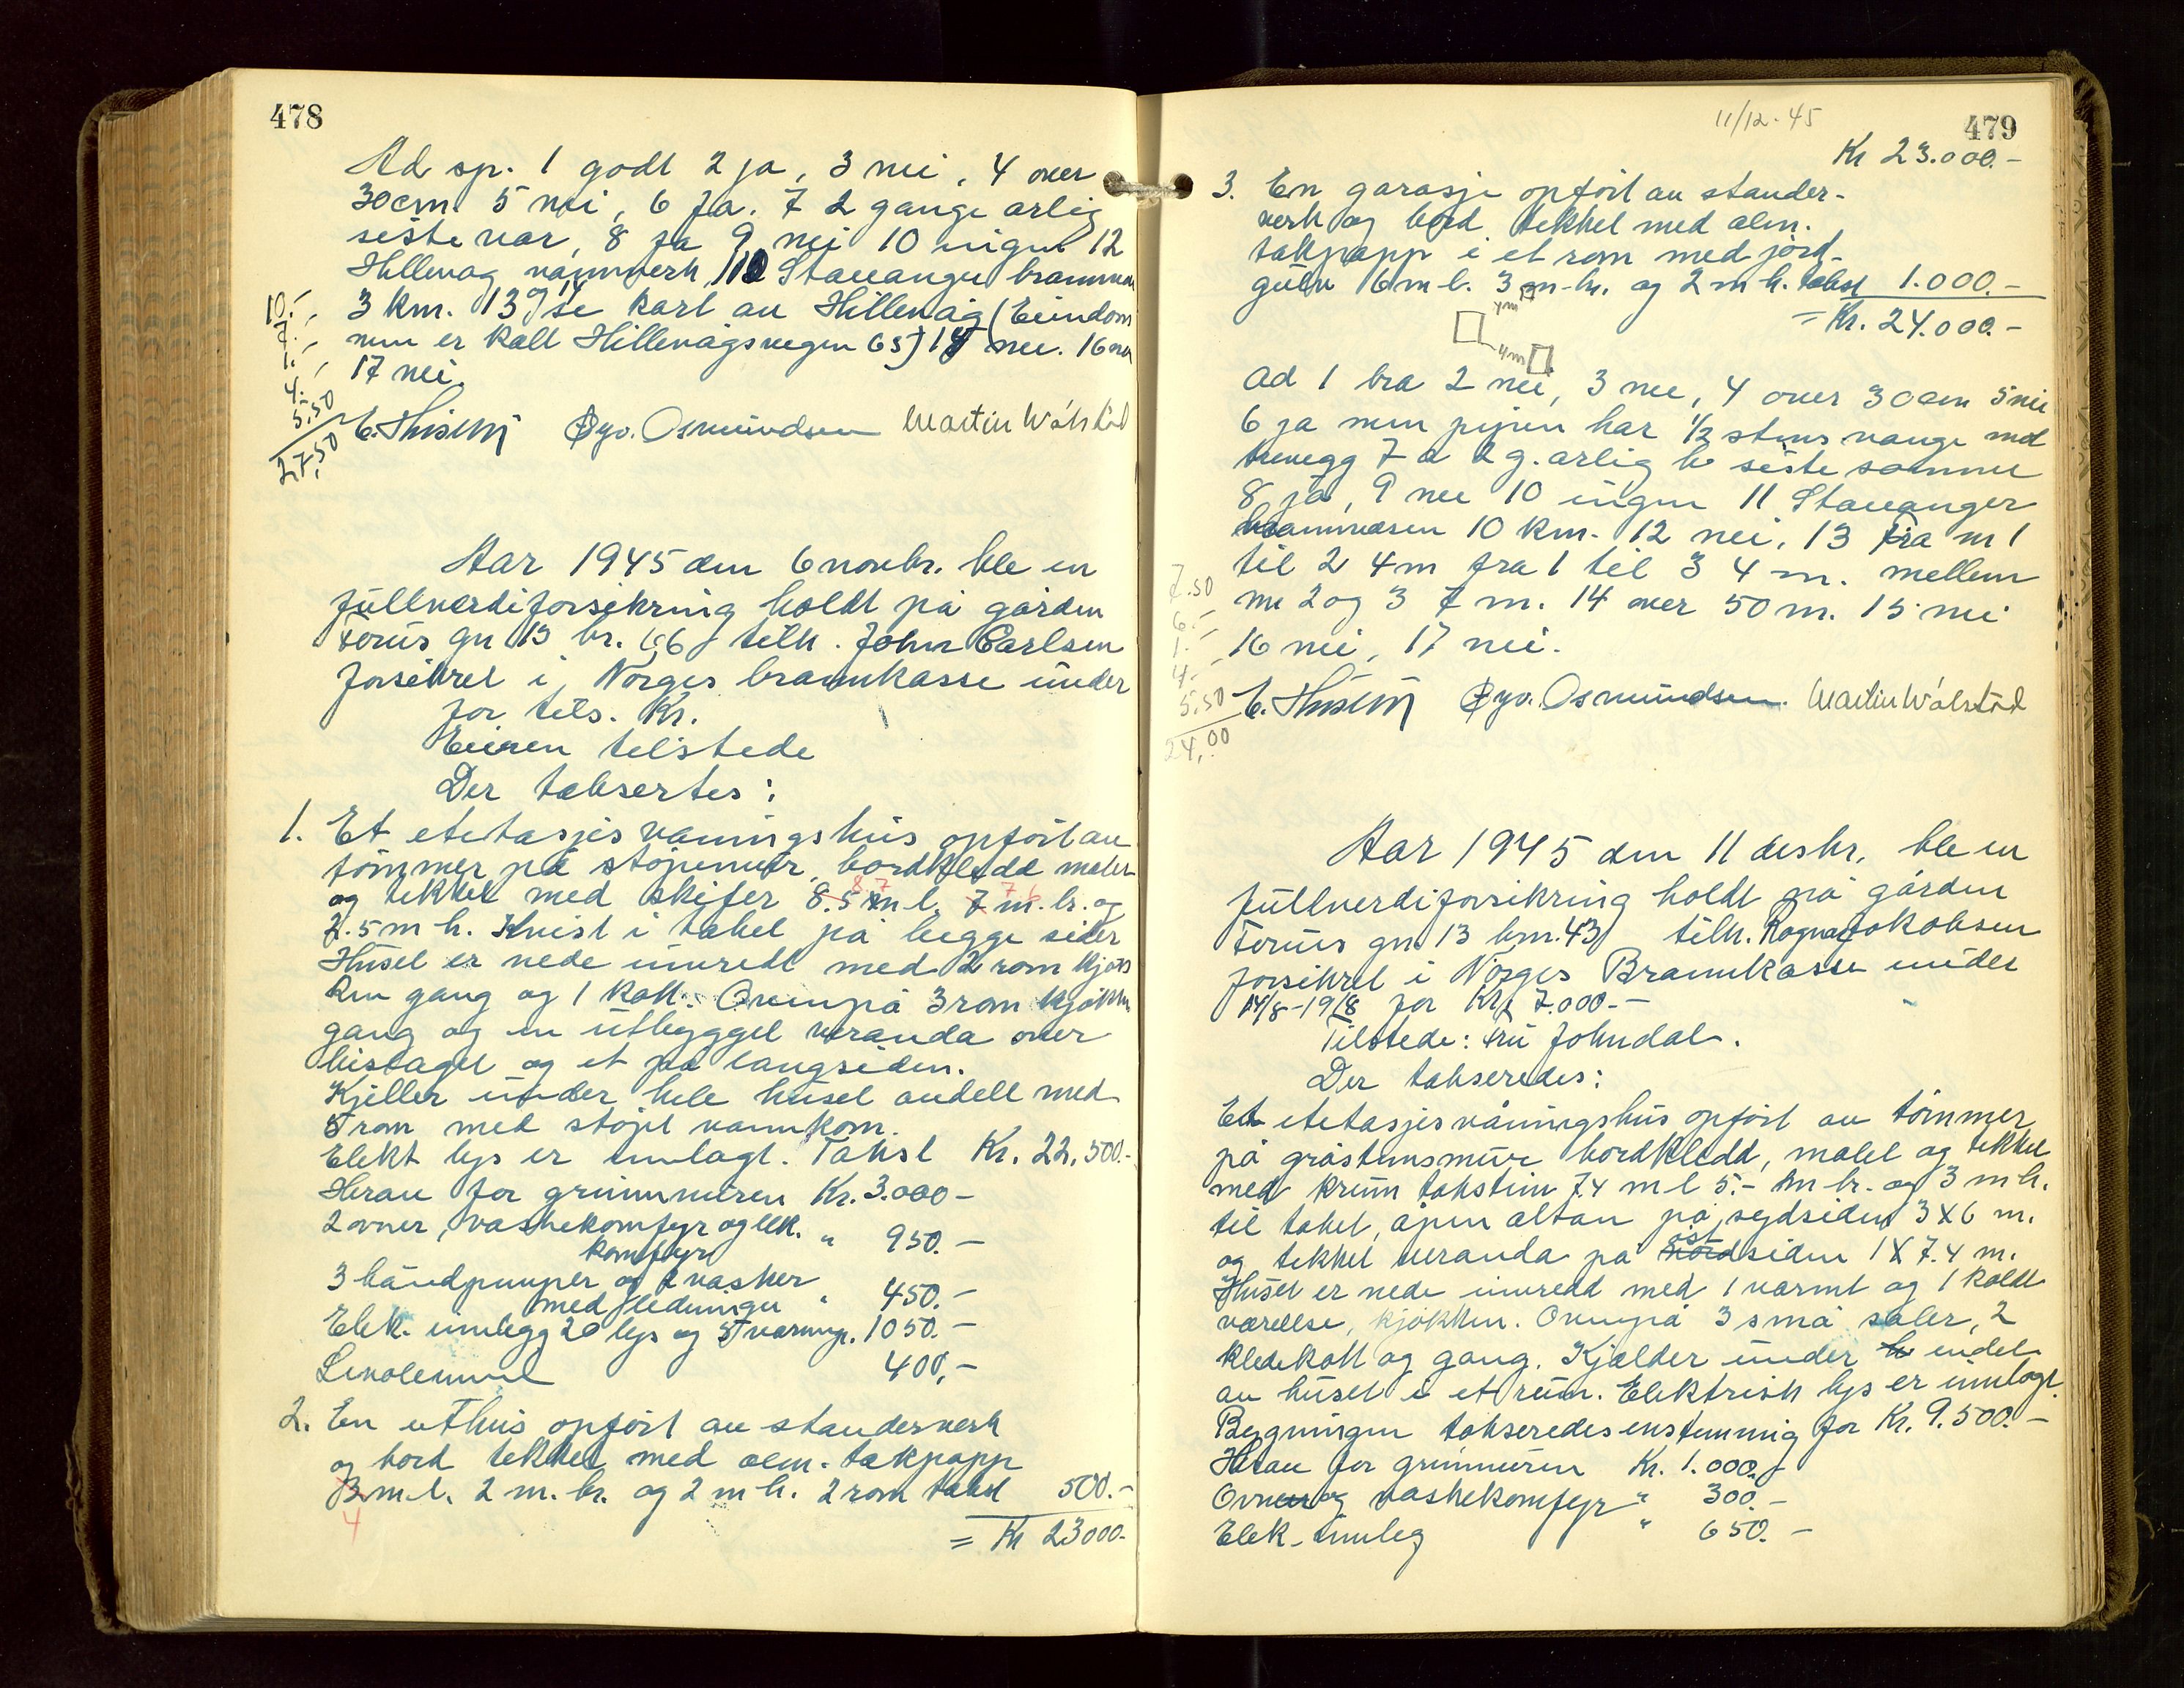 478
Ad sp. 1 godt 2 ja, 3 nei, 4 over
30cm. 5 nei, 6 ja. 7 2 gange arlig
siste var, 8 ja 9 nei 10 ingen 12
Hillevag vannverk, 11 Stavanger brannvesen
3 km. 13 og 14 se kart av Hillevåg (Eiendom
men er kalt Hillevågsvegen 65) 15 nei. 16 nei
17 nei.
10.-
7.-
1.-
4.-
5.50
27.50
E. Husebø Øyv. Osmundsen Martin Wålstød
Aar 1945 den 6 novbr. ble en
fullverdiforsikring holdt på gården
Forus gn 13 br. 66 tilh. John Carlsen
forsikret i Norges brannkasse under
for tils. Kr.
Eieren tilstede
Der taksertes:
1. Et etetasjes vaningshus opført av
tømmer på støpemur, bordkledd malet
og tekket med skifer 8.5 m l. 7 m. br. og
8.7 7.6
2.5 m h. Kvist i taket på begge sider
Huset er nede innredt med 2 rom kjøk
ken gang og 1 kott. Ovenpå 3 rom kjøkken
gang og en utbygget veranda over
bislaget og et på langsiden.
Kjeller under hele huset avdelt med
5 rom med støpt vannkom.
Elekt lys er innlagt. Takst Kr. 22.500.-
Herav for grunnmuren Kr. 3.000-
2 ovner, vaskekomfyr og elek. " 950.-
komfyr
3 håndpumper og 2 vasker
med ledninger " 450.-
Elek. innlegg 20 lys og 5 varmep. 1050.-
Linoleum 400,-
2. En uthus opført av standerverk
og bord tekket med alm. takpapp
3 m l. 2 m. br. og 2 m h. 2 rom takst 500.-
4
= Kr 23000.-
11/12-45
479
Kr 23.000.-
3. En garasje opført av stander-
verk og bord tekket med alm.
takpapp i et rom med jord-
gulv 6 m l. 3 m br. og 2 m h. takst 1.000.-
= Kr. 24.000.-
4m
4m
Ad 1 bra 2 nei, 3 nei, 4 over 30 cm 5 nei
6 ja men pipen har 1/2 stens vange med
trevegg 7 a 2 g. arlig b siste sommer
8 ja, 9 nei 10 ingen 11 Stavanger
brannvæsen 10 km. 12 nei, 13 Fra nr 1
til 2 4 m fra 1 til 3 4 m. mellem
nr 2 og 3 7 m. 14 over 50 m. 15 nei
16 nei, 17 nei.
7.50
6.-
1.-
4.-
5.50
24.00
E. Husebø Øyv. Osmundsen. Martin Wålstød
Aar 1945 den 11 desbr. ble en
fullverdiforsikring holdt på gården
Forus gn. 13 brn. 43 tilh. Ragna Jokobsen
forsikret i Norges Brannkasse under
14/8-1918 for Kr. 7.000.-
Tilstede: Fru Johndal.
Der takseredes:
Et etetasjes våningshus opført av tømmer
på gråstensmur bordkledd, malet og tekket
med krum takstein 7.4 m l 5.- m br. og 3 m h.
til taket, åpen altan på sydsiden 3 X 6 m.
øst
og tekket veranda på nordsiden 1 X 7.4 m.
Huset er nede innredd med 1 varmt og 1 kaldt
værelse, kjøkken. Ovenpå 3 små saler, 2
kledekott og gang. Kjælder under endel
av huset i et rum. Elektrisk lys er innlagt.
Bygningen takseredes enstemmig for Kr. 9.500.-
Herav for grunnuren Kr. 1.000.-
Ovner og vaskekomfyr " 300.-
Elek. innleg " 650.-